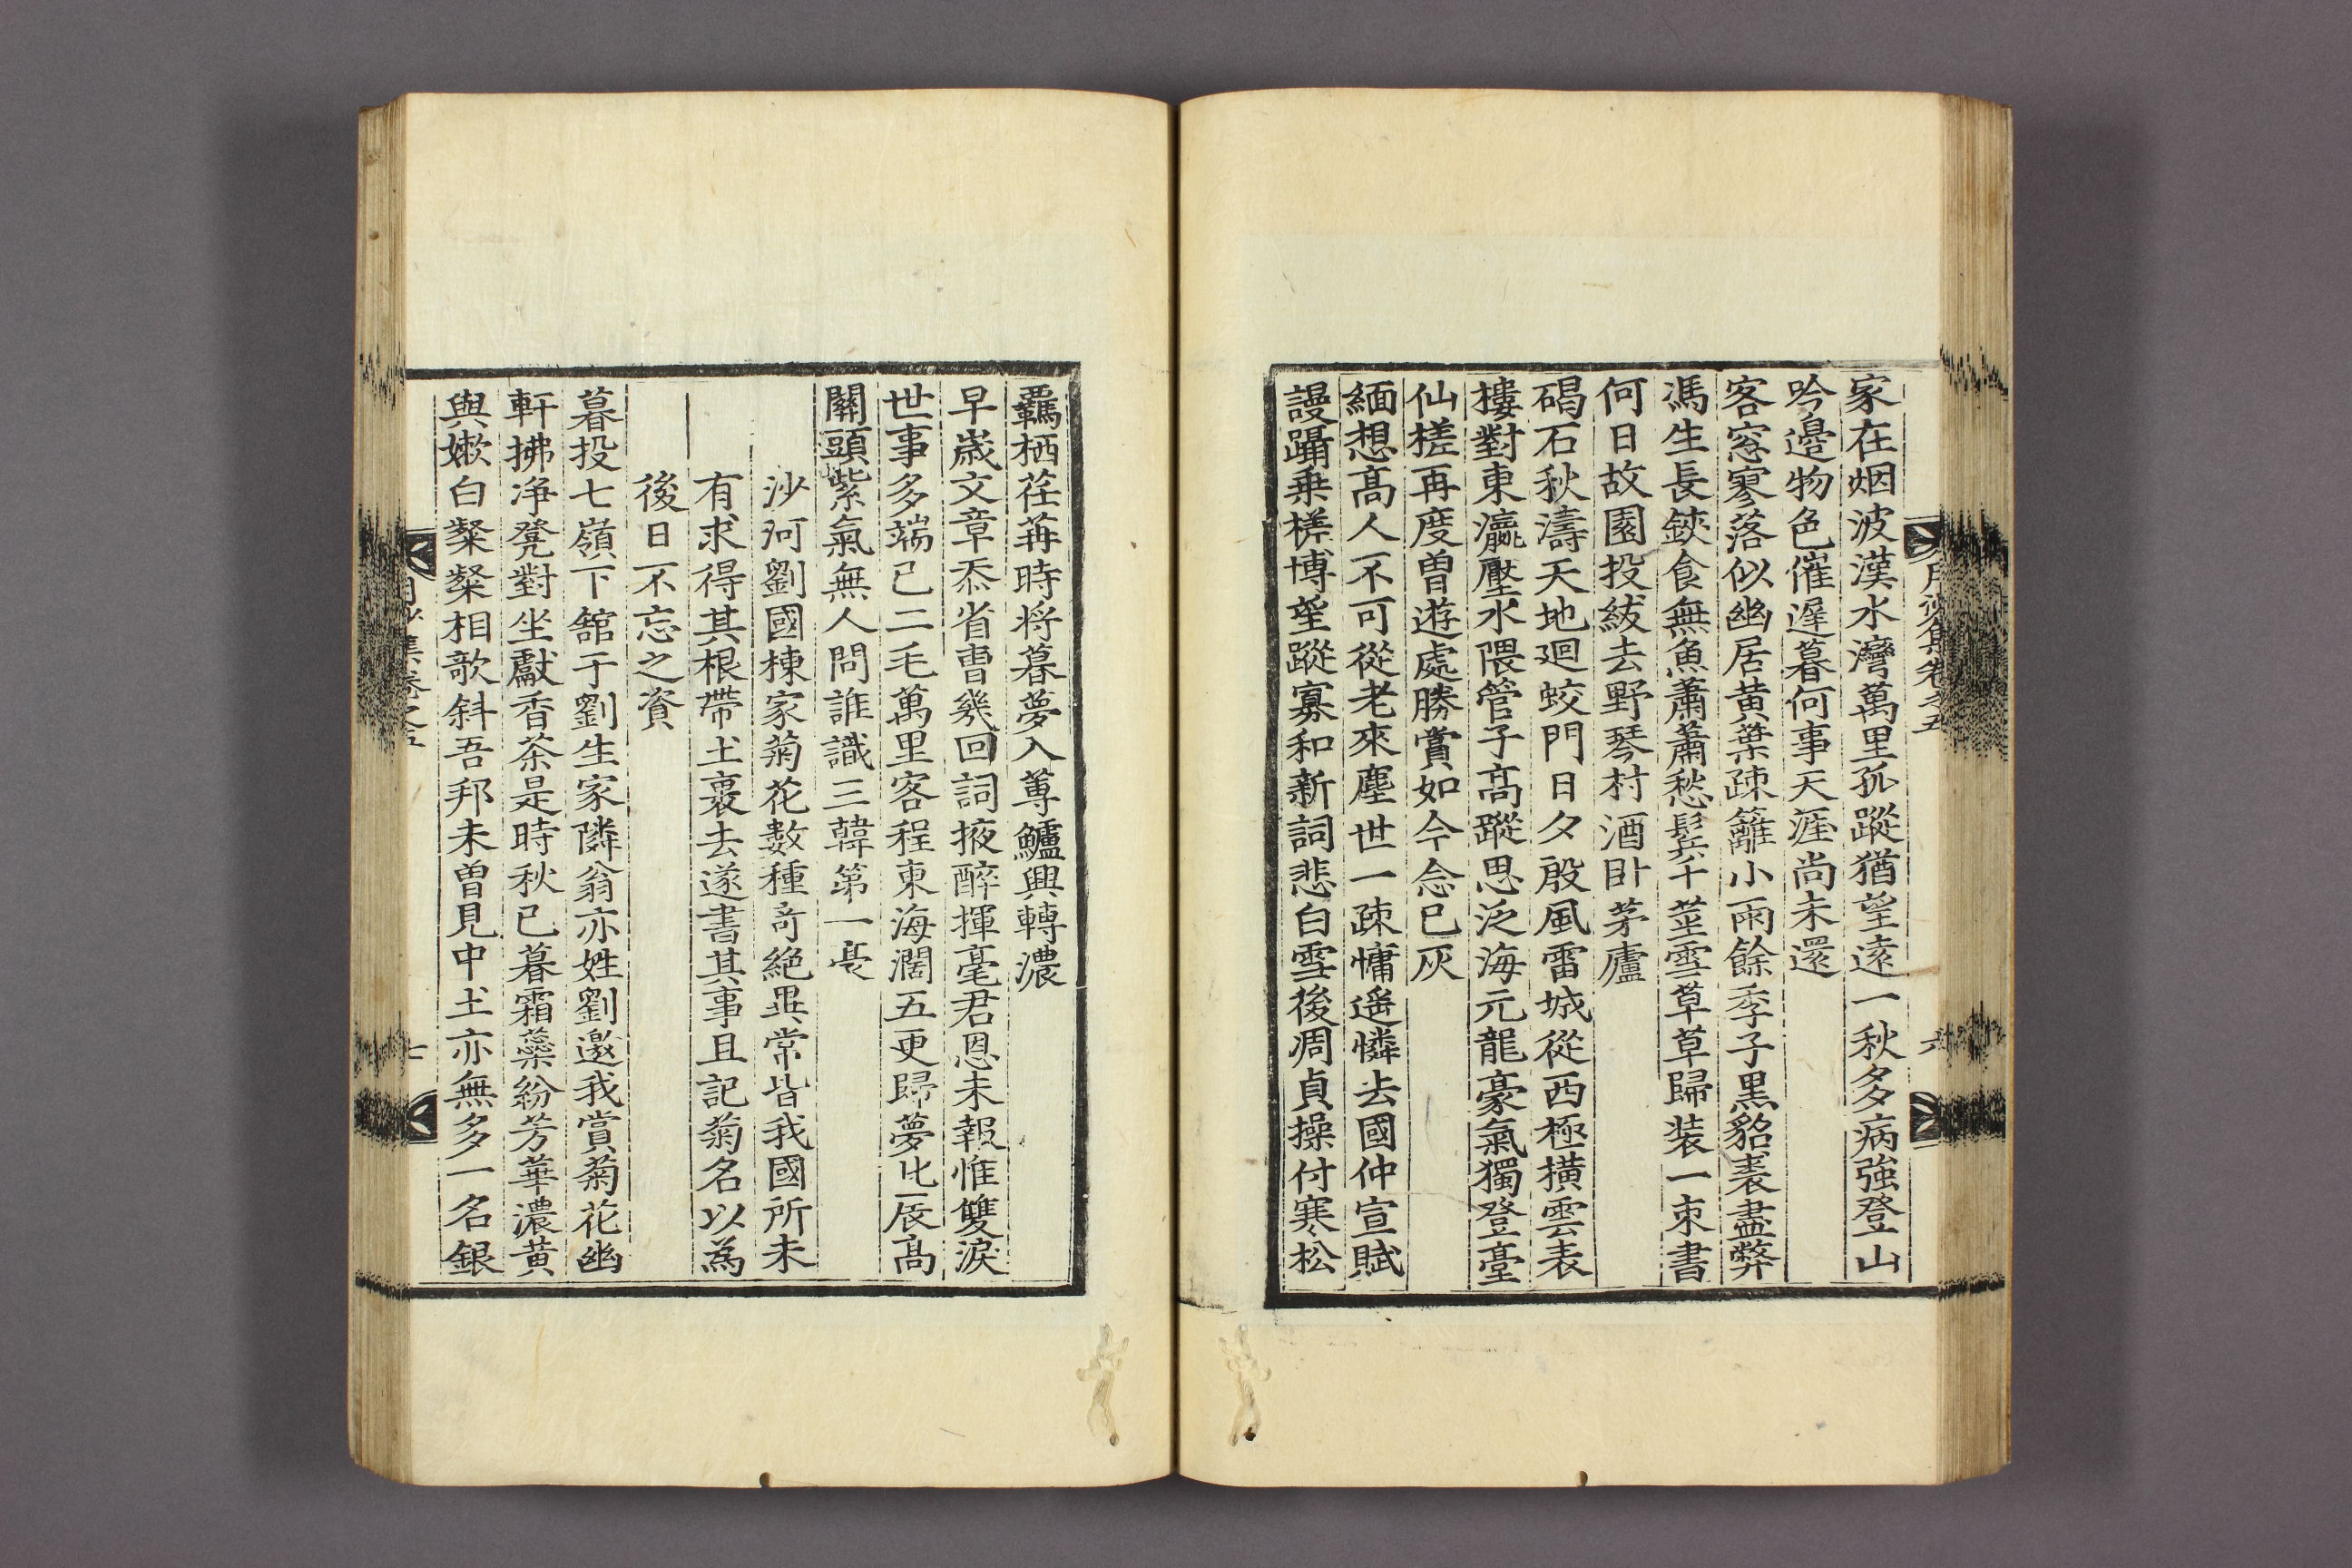 月沙集卷之五
六
家在烟波漢水灣萬里孤蹤猶望遠一秋多病強登山
吟邊物色催遲暮何事天涯尚未還
客窓寥落似幽居黄葉疎籬小雨餘季子黒貂裘盡弊
馮生長鋏食無魚蕭蕭愁鬂千莖雪草草歸装一束書
何日故園投紱去野琴村酒卧茅廬
碣石秋濤天地廻蛟門日夕殷風雷城從西極横雲表
樓對東瀛壓水隈管子高蹤思泛海元龍豪氣獨登臺
仙槎再度曽遊處勝賞如今念已灰
緬想高人不可從老來塵世一疎慵遥憐去國仲宣賦
謾躡乗槎博望蹤寡和新詞悲白雪後凋貞操付寒松
羈栖荏苒時将暮夢入蓴鱸興轉濃
早歳文章忝省曺幾回詞掖醉揮毫君恩未報惟雙淚
世事多端已二毛萬里客程東海濶五更歸夢北辰高
關頭紫氣無人問誰識三韓第一豪
沙河劉國棟家菊花數種奇絶異常皆我國所未
有求得其根帶土裹去遂書其事且記菊名以為
後日不忘之資
暮投七嶺下舘于劉生家隣翁亦姓劉邀我賞菊花幽
軒拂净凳對坐獻香茶是時秋已暮霜蘂紛芳華濃黄
與嫰白粲粲相歌斜吾邦未曽見中土亦無多一名銀
月沙集卷之五
七